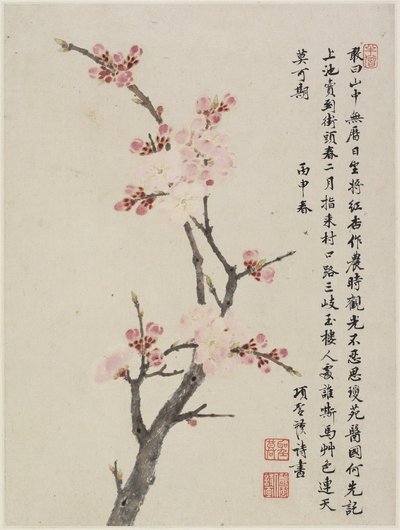 敢曰山中無曆日坐將紅杏作農時觀光不惡思瓊苑醫國何先記
上池賣到街頭春二月指來村口路三岐玉樓人處誰嘶馬艸色連天
莫可期 丙申春
項聖謨詩書